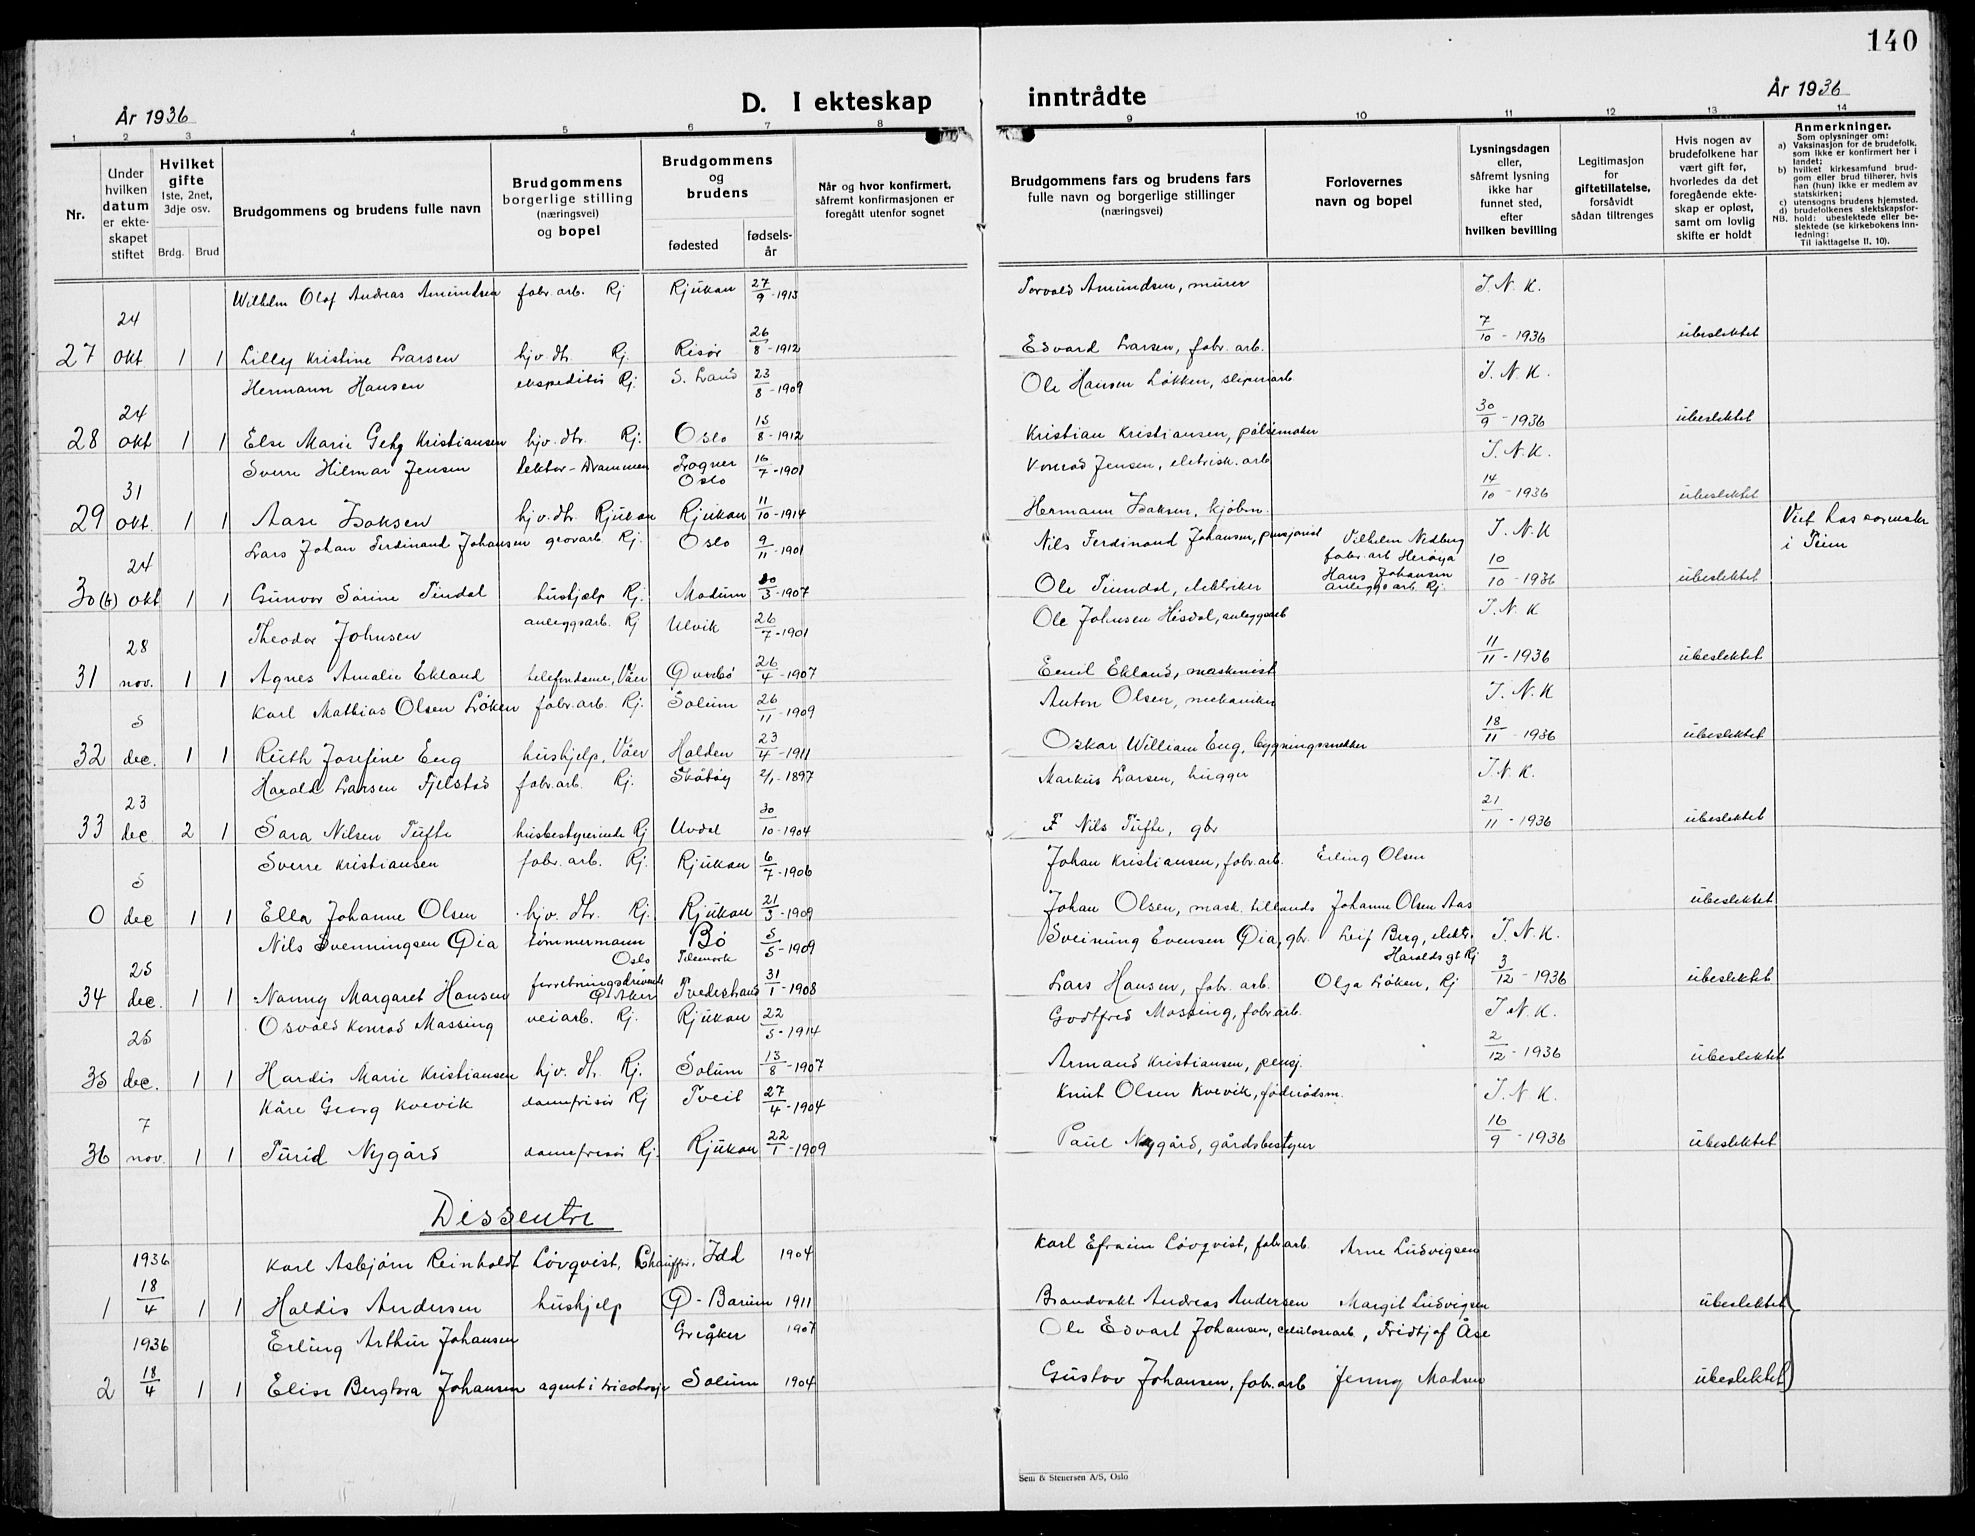 140
År 1936
D. I ekteskap inntrådte
År 1936
1 2 3 4 5 6 7 8 9 10 11 12 13 14
Nr.
Under hvilken datum er ekteskapet stiftet
Hvilket gifte
1ste, 2net, 3dje osv.
Brdg. Brud
Brudgommens og brudens fulle navn
Brudgommens borgerlige stilling (næringsvei) og bopel
Brudgommens og brudens
fødested
fødselsår
Når og hvor konfirmert, såfremt konfirmasjonen er foregått utenfor sognet
Brudgommens fars og brudens fars
fulle navn og borgerlige stillinger
(næringsvei)
Forlovernes navn og bopel
Lysningsdagen eller, såfremt lysning ikke har funnet sted, efter hvilken bevilling
Legitimasjon for giftetillatelse, forsåvidt sådan tiltrenges
Hvis nogen av brudefolkene har vært gift før, hvorledes da det foregående ekteskap er opløst, samt om lovlig skifte er holdt
Anmerkninger.
Som oplysninger om:
a) Vaksinasjon for de brudefolk, som ikke er konfirmert her i landet;
b) hvilket kirkesamfund brudgom eller brud tilhører, hvis han (hun) ikke er medlem av statskirken;
c) utensogns brudens hjemsted.
d) brudefolkenes slektskapsforhold: ubeslektede eller beslektede (se kirkebokens innledning:
NB.
Til iakttagelse II, 10).
Wilhelm Olaf Andreas Amundsen fabr. arb. Rj Rjukan 27/9-1913 Torvald Amundsen, murer I. N. K.
27 24 okt 1 1 Lilly Kristine Larsen hjv. dtr. Rj. Risør 26/8-1912 Edvard Larsen, fabr. arb. 7/10-1936 ubeslektet
Hermann Hansen ekspeditør Rj. S. Land 23/8-1909 Ole Hansen Løkken, sliperiarb I. N. K.
28 24 okt 1 1 Else Marie Kristiansen hjv. dtr. Rj. Oslo 15/8-1912 Kristian Kristiansen, pølsemaker 30/9-1936 ubeslektet
Sverre Hilmar Jensen lektor - Drammen Frogner Oslo 16/7-1901 Konrad Jensen, eletrisk. arb I. N. K.
29 31 okt. 1 1 Aase Isaksen hjv. dtr. Rjukan Rjukan 11/10-1914 Hermann Isaksen, kjøbm. 14/10-1936 ubeslektet
Lars Johan Ferdinand Johansen Rj. Oslo 9/11-1901 Nils Ferdinand Johansen, pensjonist Vilhelm Nedberg fabr. arb Herøya I. N. K Viet hos sorenskr i Tinn
30 (b) 24 okt 1 1 Gunvor Sörine Tindal hushjelp Rj. Modum 30/3-1907 Ole Tinndal, elektriker Hans Johansen anleggsarb. Rj. 10/10-1936 ubeslektet
Theodor Johnsen anleggsarb. Rj Ulvik 26/7-1901 Ole Johnsen Hisdal, anleggsarb I. N. K
31 28 nov. 1 1 Agnes Amalie Ekland telefondame, Våer Øvrebö 26/4-1907 Emil Ekland, maskinist 11/11-1936 ubeslektet
Karl Mathias Olsen Løken fabr. arb. Rj. Solum 26/11-1909 Anton Olsen, mekaniker I. N. K
32 5 dec. 1 1 Ruth Josefine Eng hushjelp, Våer Halden 23/4-1911 Oskar William Eng, bygningssnekker 18/11-1936 ubeslektet
Harald Larsen Fjelstad fabr. arb. Rj. Skåtöy 2/1-1897 Markus Larsen, hugger I. N. K.
33 23 dec 2 1 Sara Nilsen Tufte husbestyrerinde Rj Uvdal 30/10-1904 F Nils Tufte, gbr 21/11-1936 ubeslektet
Sverre Kristiansen fabr. arb. Rj. Rjukan 6/7-1906 Johan Kristiansen, fabr. arb. Erling Olsen
0 5 dec 1 1 Ella Johanne Olsen hjv. dtr. Rj. Rjukan 21/3-1909 Johan Olsen, mask. tillands Johanne Olsen Aas ubeslektet
Nils Svenningsen Øia tømmermann Oslo Bö Telemark 5/5-1909 Sveinung Evensen Øia, gbr. Leif Berg, elektr. Haraldsgt Rj I. N. K.
34 25 dec. 1 1 Nanny Margaret Hansen forretningsdrivende Ø. Aker Tvedestrand 31/1-1908 Lars Hansen, fabr. arb. Olga Löken, Rj 3/12-1936 ubeslektet
Osvald Konrad Massing veiarb. Rj. Rjukan 22/5-1914 Godtfred Massing, fabr arb. I. N. K.
35 26 dec. 1 1 Hardis Marie Kristiansen hjv. dtr. Rj. Solum 13/8-1907 Armand Kristiansen, pensj. 2/12-1936 ubeslektet
Kåre Georg Kvevik damefrisör Rj Tveit 27/4-1904 Knut Olsen Kvevik, I. N. K.
36 7 nov. 1 1 Turid Nygård damefrisör Rj. Rjukan 22/1-1909 Paul Nygård, gårdsbestyrer 16/9-1936 ubeslektet
Dissentre
1936 Karl Asbjörn Reinholdt Lövqvist, Chauffør, Idd 1904 Karl Efraim Lövqvist, fabr arb Arne Ludvigsen
1 18/4 1 1 Haldis Andersen hushjelp Ø-Barum 1911 Brandvakt Andreas Andersen Margit Ludvigsen ubeslektet
1936 Erling Arthur Johansen Greåker 1907 Ole Edvart Johansen, celulosearb, Fridtjof Åse
2 18/4 1 1 Elise Bergtora Johansen agent i tricotasje Solum 1904 Gustav Johansen, fabr. arb Jenny Madsen ubeslektet
Sem & Stenersen A/S, Oslo